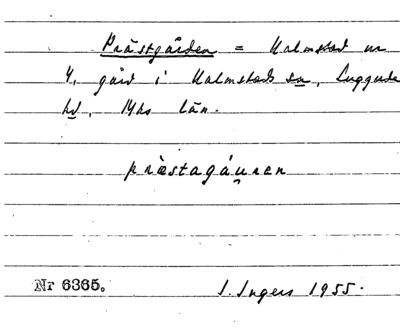 Prästgården = Malmstad nr
4, gård i Halmstads sn, Luggude
hd, Mhs län.
prästagáu̯ren
Nr 6365.
I. Ingers 1955.